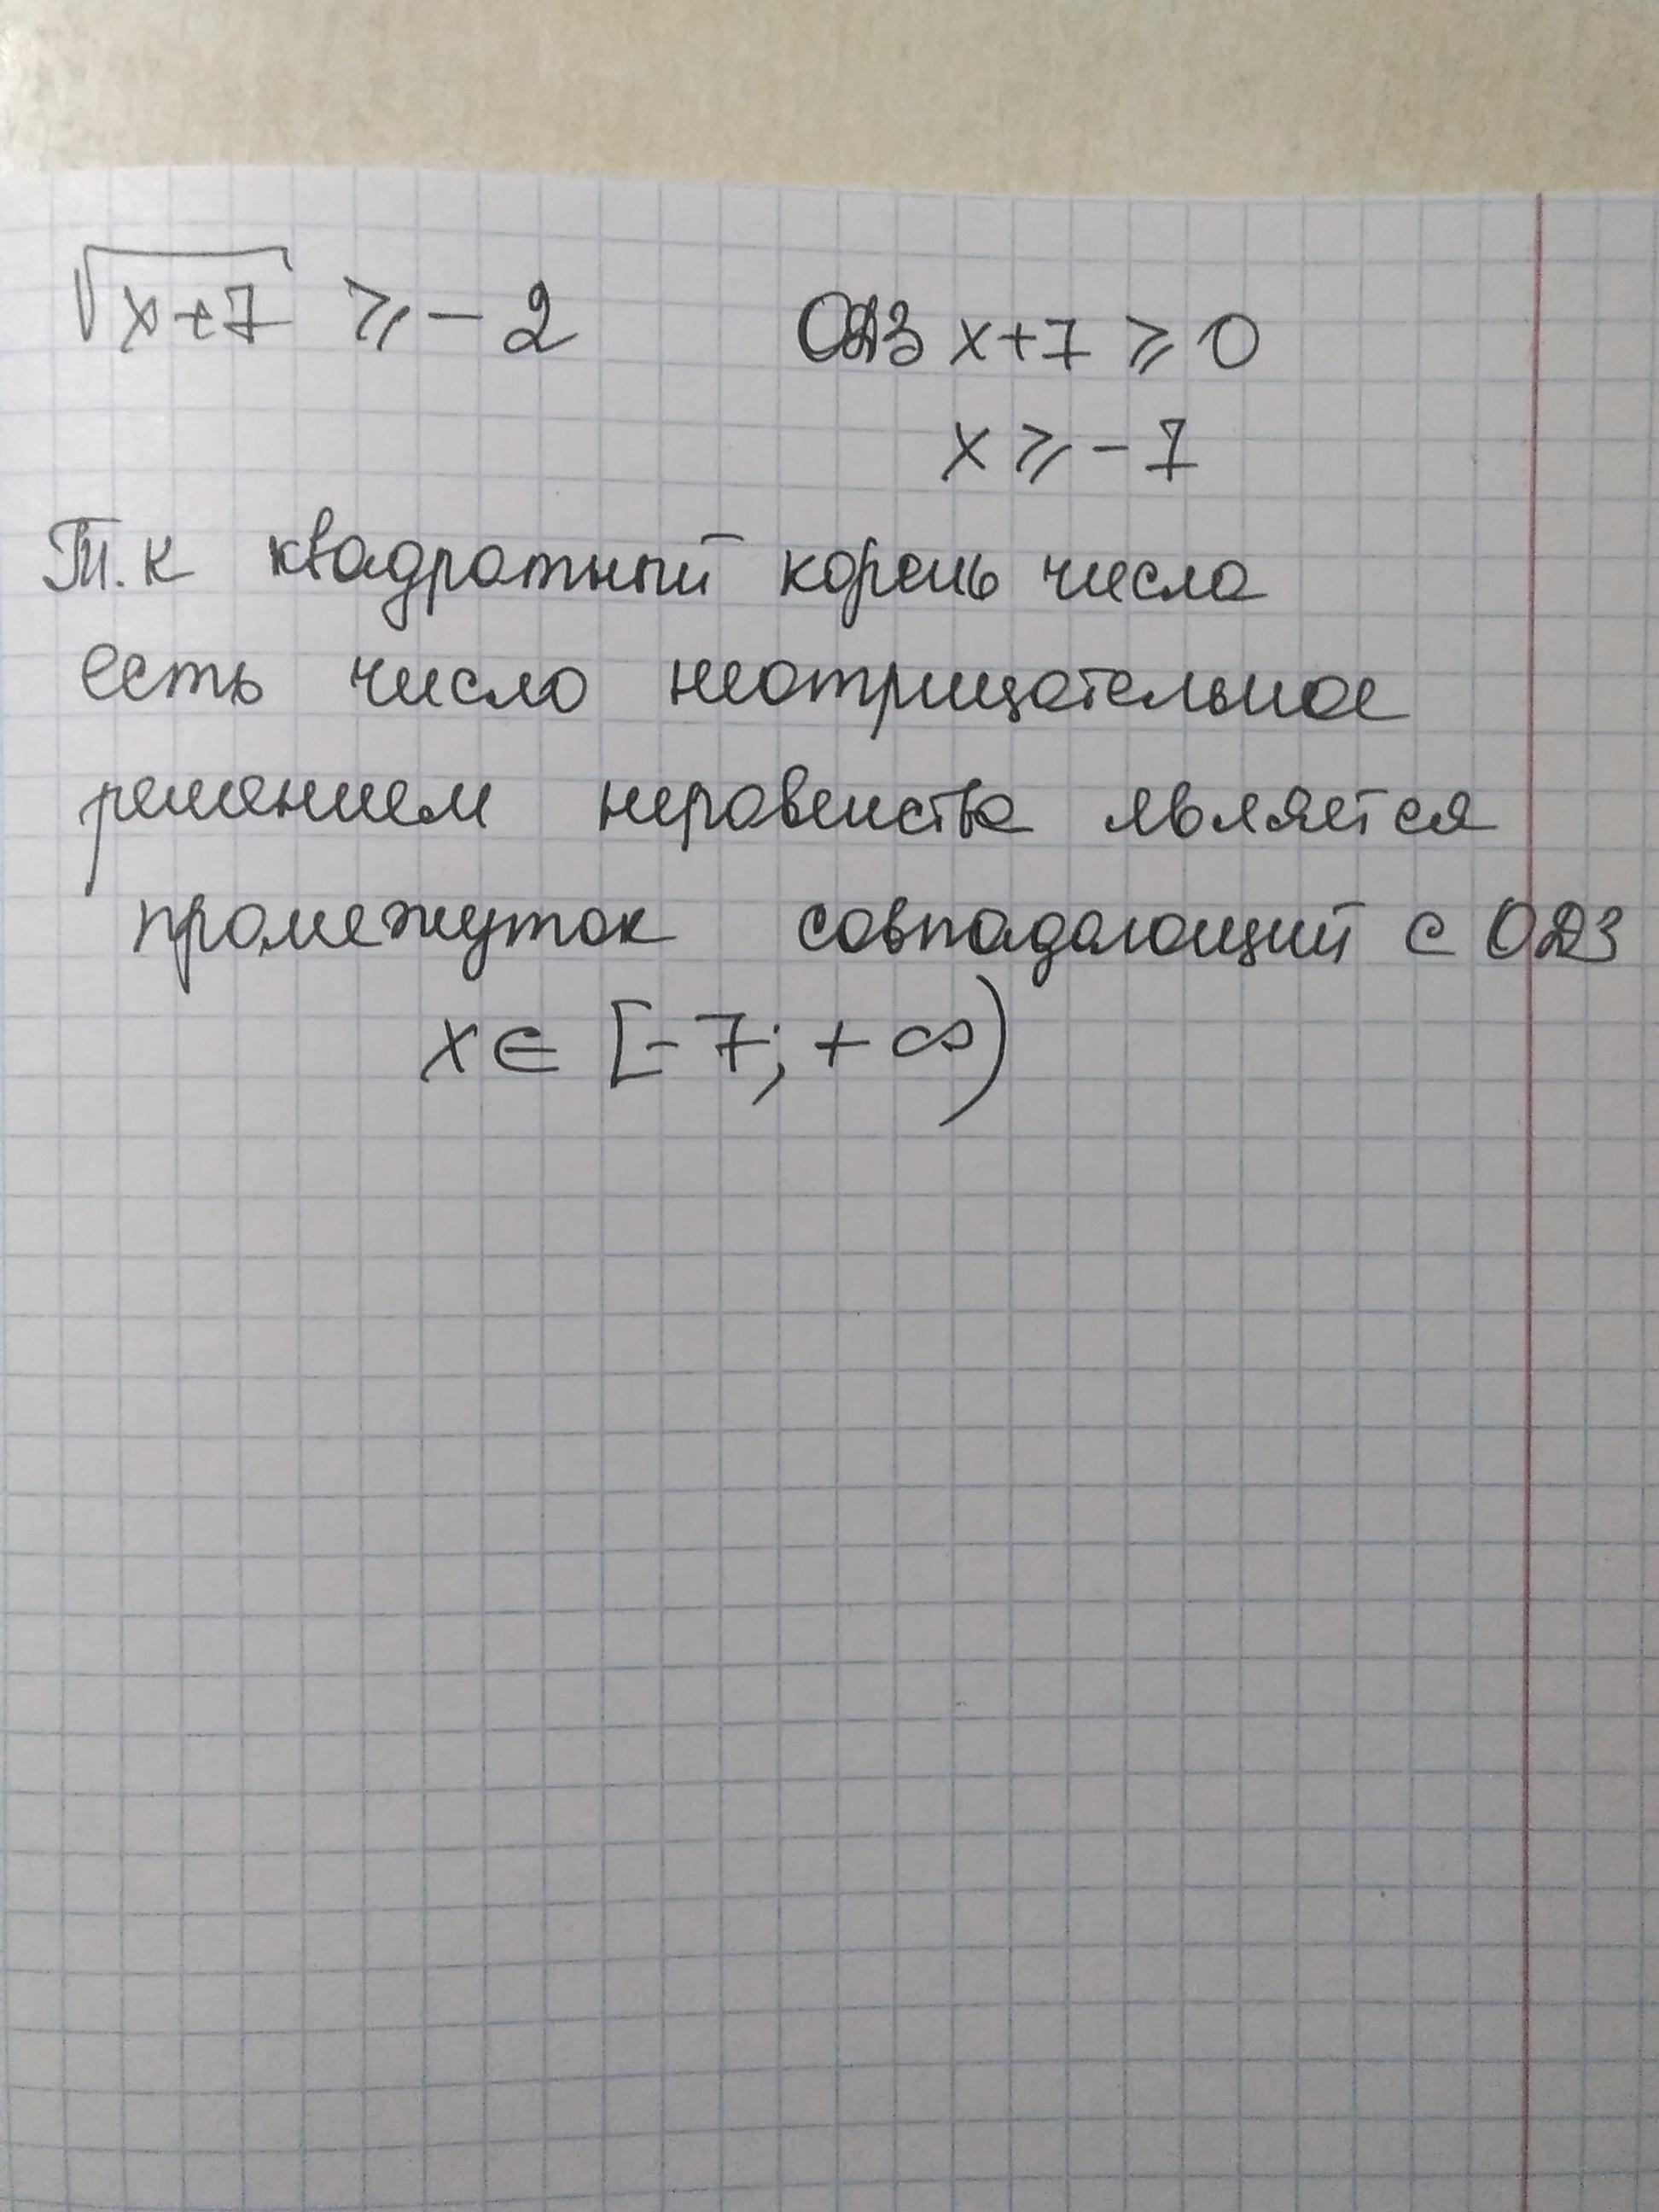 √x+7 ⩾ -2 ОДЗ x+7 ⩾ 0
x ⩾ -7
Т.к квадратный корень числа
есть число неотрицательное
решением неравенства является
промежуток совпадающий с ОДЗ
x ∈ [-7; +∞)